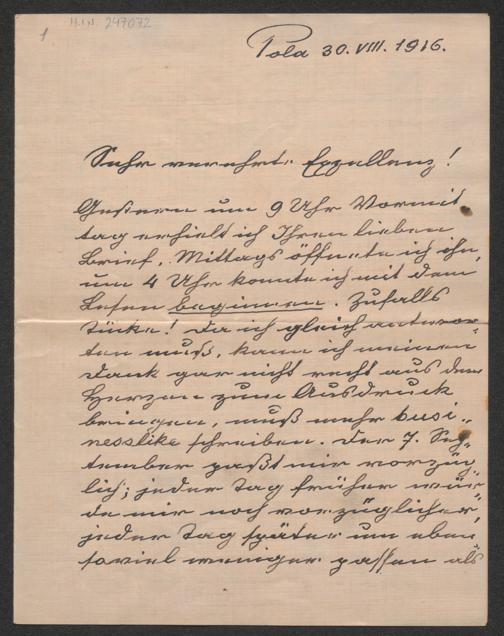 1
H.I.N. 247072
Pola 30. VIII. 1916.
Sehr verehrte Exzellenz!
Gestern um 9 Uhr Vormit
tag erhielt ich Ihren lieben
Brief. Mittags öffnete ich ihn,
um 4 Uhr konnte ich mit dem
Lesen beginnen. Zufalls
Tücke! Da ich gleich antwor-
ten muß, kann ich meinen
Dank gar nicht recht aus dem
Herzen zum Ausdruck
bringen, muß mehr busi-
nesslike schreiben. Der 7. Sep-
tember paßt mir vorzüg-
lich; jeder Tag früher wür-
de mir noch vorzüglicher,
jeder Tag später um eben
soviel weniger passen als